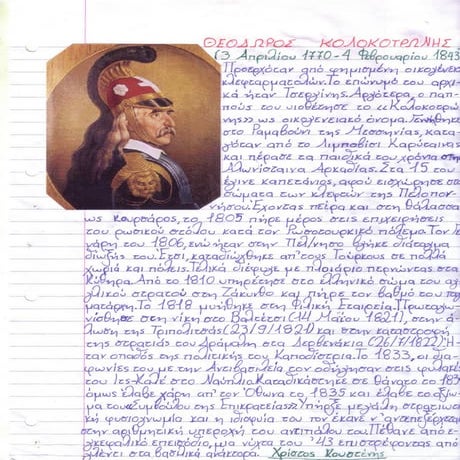 ΘΕΟΔΩΡΟΣ ΚΟΛΟΚΟΤΡΩΝΗΣ
(3 Απριλίου 1770-4 Φεβρουαρίου 1843)
Προερχόταν από φημισμένη οικογένεια
κλεφταρματολών. Το επώνυμο του αρχι-
κά ήταν Τσεργίνης. Αργότερα, ο παπ-
πούς του υιοθέτησε το «Κολοκοτρώ-
νης» ως οικογενειακό όνομα. Γεννήθηκε
στο Ραμαβούνι της Μεσσηνίας, κατα-
γόταν από το Λιμποβίσι Καρύταινας
και πέρασε τα παιδικά του χρόνια στην
Αλωνίσταινα Αρκαδίας. Στα 15 του
έγινε καπετάνιος, αφού εισχώρησε στα
σώματα των κλεφτών της Πελοπον-
νήσου. Έχοντας πείρα και στη θάλασσα
ως κουρσάρος, το 1805 πήρε μέρος στις επιχειρήσεις
του ρωσικού στόλου κατά τον Ρωσοτουρκικό πόλεμο. Τον Ιε-
νάρη του 1806, ενώ ήταν στην Πελ/νησο βγήκε διάταγμα
δίωξής του. Έτσι, καταδιώχθηκε απ' τους Τούρκους σε πολλά
χωριά και πόλεις. Τελικά διέφυγε με πλοιάριο περνώντας στα
Κύθηρα. Από το 1810 υπηρέτησε στο ελληνικό σώμα του αγ-
γλικού στρατού στη Ζάκυνθο και πήρε τον βαθμό του τα-
γματάρχη. Το 1818 μυήθηκε στη Φιλική Εταιρεία. Πρωταγω-
νίσθησε στη νίκη στο Βαλτέτσι (14 Μαΐου 1821), στην ά-
λωση της Τριπολιτσάς (23/9/1821) και στην καταστροφή
της στρατιάς του Δράμαλη στα Δερβενάκια (26/7/1822). Ή-
ταν οπαδός της πολιτικής του Καποδίστρια. Το 1833, οι δια-
φωνίες του με την Αντιβασιλεία τον οδήγησαν στις φυλακές
του Ιτς-Καλέ στο Ναύπλιο. Καταδικάστηκε σε θάνατο το 1834
όμως έλαβε χάρη απ' τον Όθωνα το 1835 και έλαβε το αξίω-
μα του «Συμβούλου της Επικρατείας». Υπήρξε μεγάλη στρατιωτι-
κή φυσιογνωμία και η ιδιοφυΐα του τον έκανε ν' αντεπεξέρχεται
στην αριθμητική υπεροχή του αντιπάλου. Πέθανε από ε-
γκεφαλικό επεισόδιο, μια νύχτα του '43 επιστρέφοντας από
γλέντι στα βασιλικά ανάκτορα. Χρίστος Κουστένης